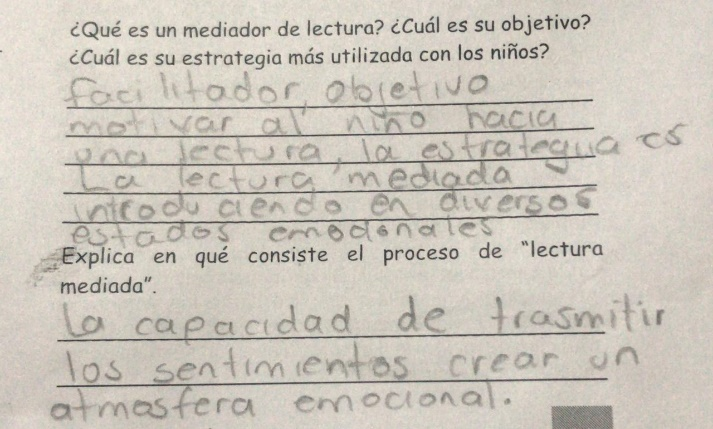 ¿Qué es un mediador de lectura? ¿Cuál es su objetivo?
¿Cuál es su estrategia más utilizada con los niños?
facilitador, objetivo
motivar al niño hacia
una lectura, la estrategua es
La lectura mediada
introduciendo en diversos
estados emocionales
Explica en qué consiste el proceso de “lectura
mediada”.
la capacidad de trasmitir
los sentimientos crear un
atmosfera emocional.